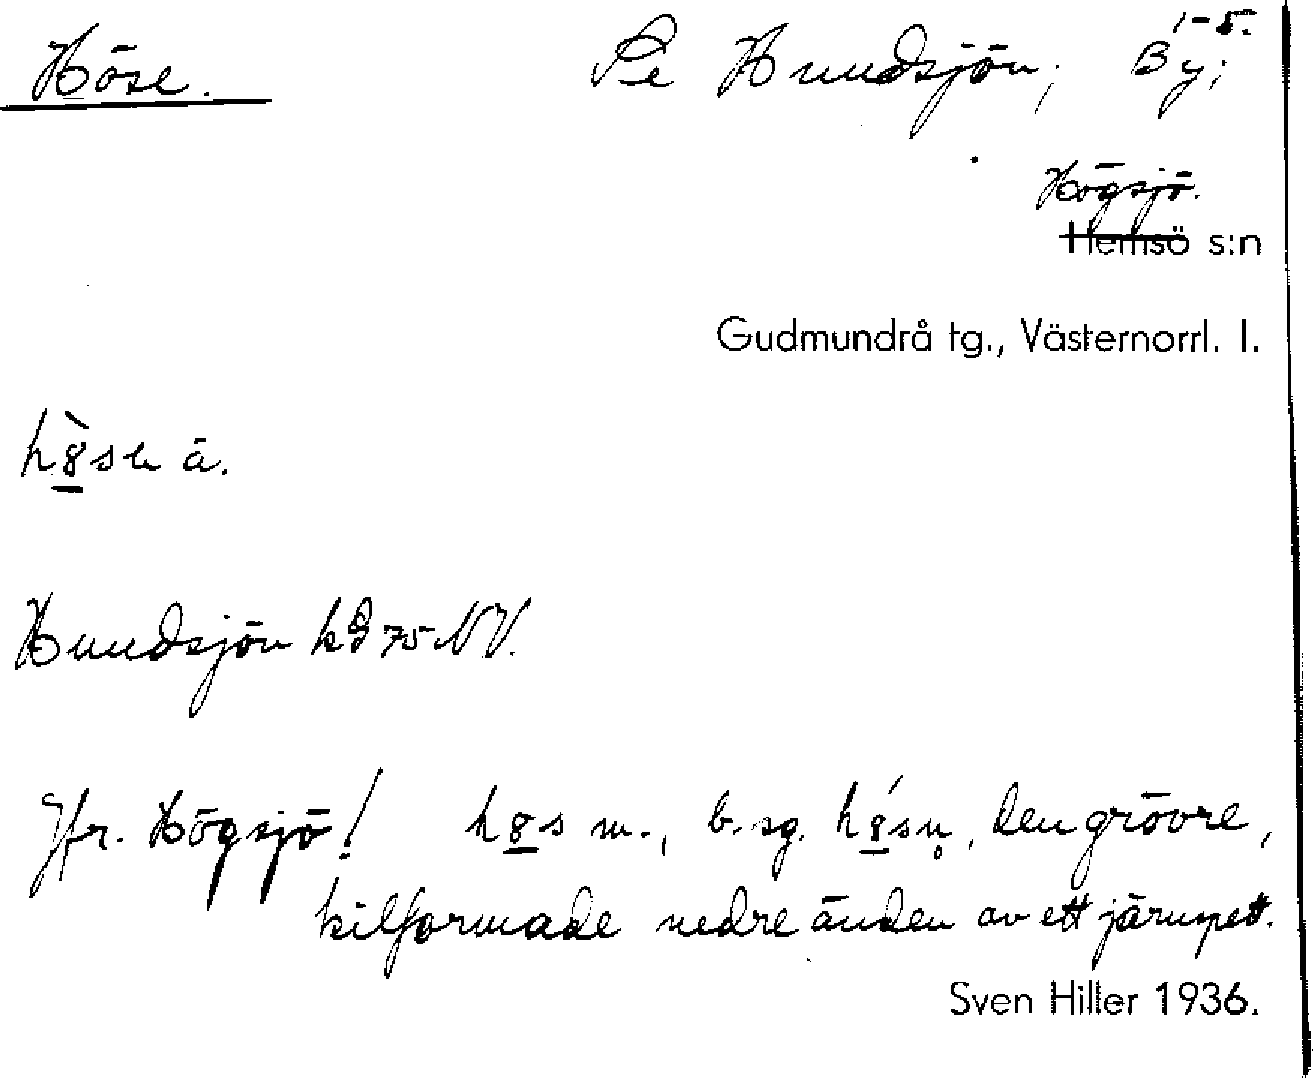 Höse. Se Hundsjön; By; 1-5.
Högsjö.
Hemsö s:n
Gudmundrå tg., Västernorrl. l.
ä.
Hundsjön kg 75 NV.
Jfr. Högsjö! m., b. sg. den grövre,
kilformade nedre änden av ett järnspett.
Sven Hiller 1936.